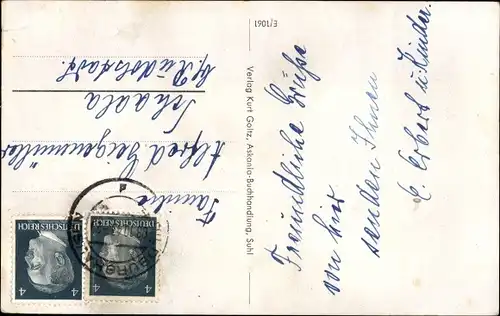 Freundliche Grüße
von hier
senden Ihnen
E. Erbert u. Kinder.
E/1061
Verlag Kurt Göltz, Askania-Buchhandlung, Suhl
Familie
Alfred
Schaala
b/ Rudolstadt.
DEUTSCHES REICH
4 4
DEUTSCHES REICH
4 4